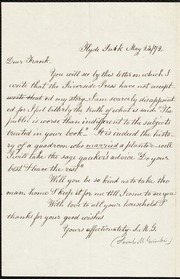 Hyde Park May 24/74.
Dear Frank.
You will see by this letter in which I
write that the Riverside Press have not accept-
ed my story, I am scarcely disappoint-
ed for I felt bitterly the truth of what is said "The
public is worse than indifferent to the subjects
treated in your book." It is indeed the histo-
ry of a quadroon who married a planter. well
I will take the sage quaker's advice "Do your
best & leave the rest."
Will you be so kind as to take the
man home & keep it for me till I come to
With love to all your household &
thanks for your good wishes
Yours affectionately S. M. G.